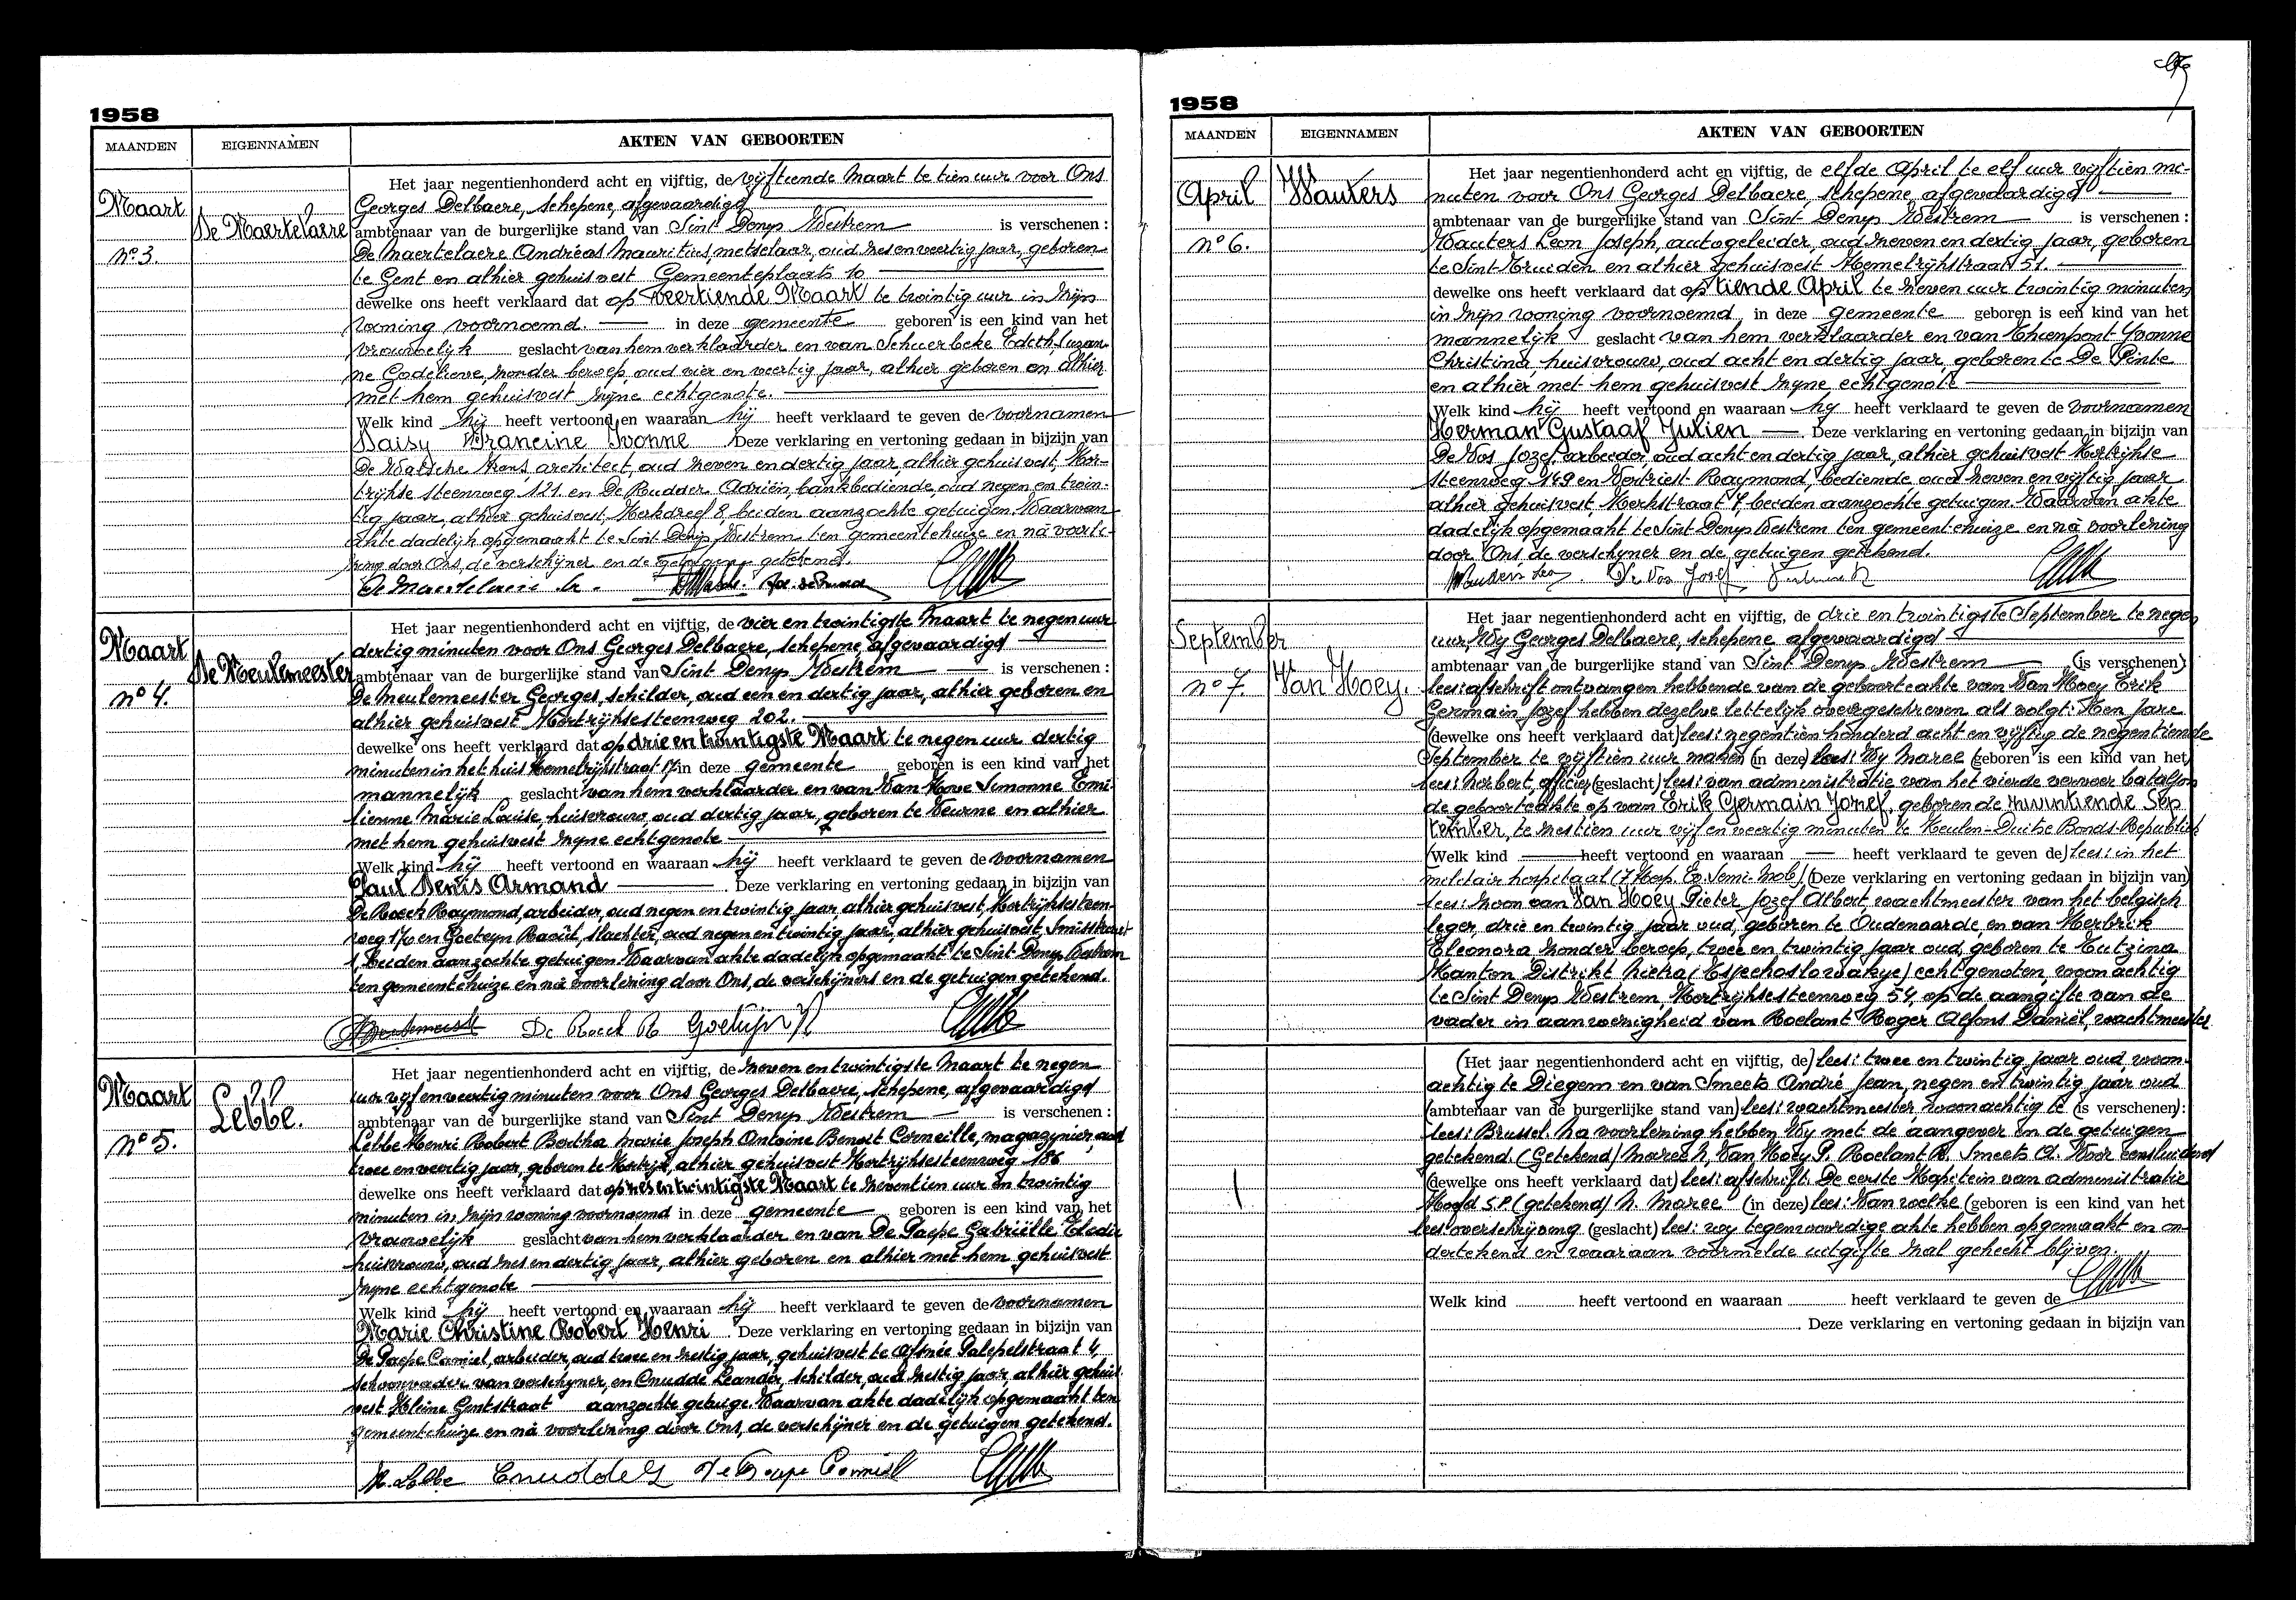 1958
MAANDEN
EIGENNAMEN
AKTEN VAN GEBOORTEN
Maart
De Maertelaere
n° 3.
Het jaar negentienhonderd acht en vijftig, de vijftiende Maart te tien uur voor Ons
Georges Delbaere, schepene, afgevaardigd
ambtenaar van de burgerlijke stand van Sint Denys Westrem is verschenen :
De Maertelaere Andréas Mauritius, metselaar, oud zes en veertig jaar, geboren
te Gent en alhier gehuisvest Gemeenteplaats 10
dewelke ons heeft verklaard dat op veertiende Maart te twintig uur in zijn
woning voornoemd. in deze gemeente geboren is een kind van het
vrouwelijk geslacht van hem verklaarder en van Schuerbeke Edith, Suzan-
ne Godelieve, zonder beroep, oud vier en veertig jaar, alhier geboren en alhier
met hem gehuisvest zyne echtgenote.
Welk kind hij heeft vertoond en waaraan hij heeft verklaard te geven de voornamen
Daisy Francine Yvonne Deze verklaring en vertoning gedaan in bijzijn van
De Walsche Frans, architect, oud zeven en dertig jaar alhier gehuisvest, Kor-
trijkse steenweg 121 en De Rudder Adriën, bankbediende, oud negen en twin-
tig jaar, alhier gehuisvest, Kerkdreef 8, beiden aanzochte getuigen. Waarvan
akte dadelijk opgemaakt te Sint Denys Westrem ten gemeentehuize en nà voorle-
zing door Ons, de verschijner en de getuigen getekend.
De Maertelaere A.
Maart
De Meulemeester
n° 4.
Het jaar negentienhonderd acht en vijftig, de vier en twintigste Maart te negen uur
dertig minuten voor Ons Georges Delbaere, schepene, afgevaardigd
ambtenaar van de burgerlijke stand van Sint Denys Westrem is verschenen :
De Meulemeester Georges, schilder, oud een en dertig jaar, alhier geboren en
alhier gehuisvest Kortrijksesteenweg 202.
dewelke ons heeft verklaard dat op drie en twintigste Maart te negen uur dertig
minuten in het huis Hemelrijkstraat 17 in deze gemeente geboren is een kind van het
mannelijk geslacht van hem verklaarder en van Van Hove Simonne Emi-
lienne Marie Louise, huisvrouw, oud dertig jaar, geboren te Veurne en alhier
met hem gehuisvest zyne echtgenote
Welk kind hij heeft vertoond en waaraan hij heeft verklaard te geven de voornamen
Paul Denis Armand . Deze verklaring en vertoning gedaan in bijzijn van
De Roeck Raymond, arbeider, oud negen en twintig jaar, alhier gehuisvest, Kortrijksesteen-
weg 176 en Goeteyn Raoul, slachter, oud negen en twintig jaar, alhier gehuisvest, Smisstraat
1, beiden aanzochte getuigen. Waarvan akte dadelijk opgemaakt te Sint Denys Westrem
ten gemeentehuize en nà voorlezing door Ons, de verschijners en de getuigen getekend.
De Roeck R Goeteyn R
Maart
Lebbe.
n° 5.
Het jaar negentienhonderd acht en vijftig, de zeven en twintigste Maart te negen
uur vijf en veertig minuten voor Ons Georges Delbaere, schepene, afgevaardigd
ambtenaar van de burgerlijke stand van Sint Denys Westrem is verschenen :
Lebbe Henri Robert Bertha Marie Joseph Antoine Benoit Corneille, magazynier, oud
twee en veertig jaar, geboren te Kortrijk, alhier gehuisvest Kortrijksesteenweg 186
dewelke ons heeft verklaard dat op zes en twintigste Maart te zeventien uur en twintig
minuten in zijn woning voornoemd in deze gemeente geboren is een kind van het
vrouwelijk geslacht van hem verklaarder en van De Paepe Gabriëlle Eledie
huisvrouw, oud zes en dertig jaar, alhier geboren en alhier met hem gehuisvest
zyne echtgenote
Welk kind hij heeft vertoond en waaraan hij heeft verklaard te geven de voornamen
Marie Christine Robert Henri . Deze verklaring en vertoning gedaan in bijzijn van
De Paepe Camiel, arbeider, oud twee en zestig jaar, gehuisvest te Afsnée Palepelstraat 4,
schoonvader van verschyner, en Cnudde Leander, schilder, oud zestig jaar, alhier gehuis-
vest Kleine Gentstraat aanzochte getuige. Waarvan akte dadelijk opgemaakt ten
gemeentehuize en nà voorlezing door Ons, de verschijner en de getuigen getekend.
H. Lebbe Cnudde L De Paepe Camiel
1958
MAANDEN
EIGENNAMEN
AKTEN VAN GEBOORTEN
April
Wauters
n° 6.
Het jaar negentienhonderd acht en vijftig, de elfde April te elf uur vijftien mi-
nuten voor Ons Georges Delbaere, schepene, afgevaardigd
ambtenaar van de burgerlijke stand van Sint Denys Westrem is verschenen :
Wauters Leon Joseph, autogeleider, oud zeven en dertig jaar, geboren
te Sint-Truiden en alhier gehuisvest Hemelrijkstraat 51.
dewelke ons heeft verklaard dat op tiende April te zeven uur twintig minuten
in zijn woning voornoemd in deze gemeente geboren is een kind van het
mannelijk geslacht van hem verklaarder en van Thienpont Yvonne
Christina, huisvrouw, oud acht en dertig jaar, geboren te De Pinte
en alhier met hem gehuisvest zyne echtgenote
Welk kind hij heeft vertoond en waaraan hy heeft verklaard te geven de voornamen
Herman Gustaaf Julien . Deze verklaring en vertoning gedaan in bijzijn van
De Vos Jozef, arbeider oud acht en dertig jaar, alhier gehuisvest Kortrijkse
steenweg 149 en Vertriest Raymond, bediende, oud zeven en vijftig jaar
alhier gehuisvest, Kerkstraat 4, beiden aanzochte getuigen. Waarvan akte
dadelijk opgemaakt te Sint Denys Westrem ten gemeentehuize en nà voorlezing
door Ons de verschyner en de getuigen getekend.
Wauters Leo De Vos Josef
September
Van Hoey.
n° 7
Het jaar negentienhonderd acht en vijftig, de drie en twintigste September te negen
uur, Wy Georges Delbaere, schepene, afgevaardigd
ambtenaar van de burgerlijke stand van Sint Denys Westrem (is verschenen)
lees: afschrift ontvangen hebbende van de geboorteakte van Van Hoey Erik
Germain Jozef hebben dezelve lettelijk overgeschreven als volgt: Ten jare
(dewelke ons heeft verklaard dat) lees: negentien honderd acht en vijftig de negentiende
September te vijftien uur maken (in deze) lees: Wy Maree (geboren is een kind van het)
lees: Norbert, officier (geslacht) lees: van administratie van het vierde vervoer bataljon
de geboorteakte op van Erik Germain Jozef, geboren de zeventiende Sep
tember, te zestien uur vijf en veertig minuten te Keulen-Duitse Bonds-Republiek
(Welk kind heeft vertoond en waaraan heeft verklaard te geven de) lees: in het
militair hospitaal (7 Hosp. Ev. Semi-Mob.) (Deze verklaring en vertoning gedaan in bijzijn van)
lees: zoon van Van Hoey Pieter Jozef Albert, wachtmeester van het belgisch
leger, drie en twintig jaar oud, geboren te Oudenaarde, en van Kerbrik
Eleonora zonder beroep, twee en twintig jaar oud, geboren te Kutzina
Kanton Distrikt Nietra (Tsjechoslowakye) echtgenoten, woonachtig
te Sint Denys Westrem, Kortrijksesteenweg 54, op de aangifte van de
vader in aanwezigheid van Roelant Roger Alfons Daniël, wachtmeester
(Het jaar negentienhonderd acht en vijftig, de) lees: twee en twintig jaar oud, woon-
achtig te Diegem en van Smeets André Jean, negen en twintig jaar oud
(ambtenaar van de burgerlijke stand van) lees: wachtmeester woonachtig te (is verschenen):
lees: Brussel. Na voorlezing hebben Wy met de aangever en de getuigen
getekend (Getekend) Maree N, Van Hoey P. Roelant R. Smeets A. Voor eensluidend
(dewelke ons heeft verklaard dat) lees: afschrift. De eerste Kapitein van administratie
Hoofd S.P. (getekend) N. Maree (in deze) lees: Van welke (geboren is een kind van het
lees: overschrijving (geslacht) lees: wy tegenwoordige akte hebben opgemaakt en on-
dertekend en waaraan voormelde uitgifte zal gehecht blijven.
Welk kind heeft vertoond en waaraan heeft verklaard te geven de
. Deze verklaring en vertoning gedaan in bijzijn van